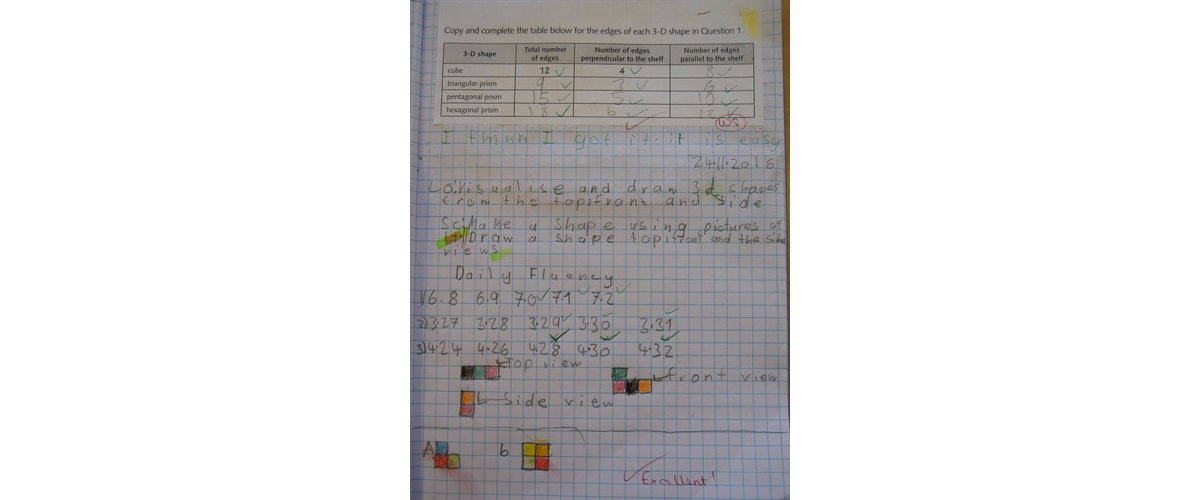 Copy and complete the table below for the edges of each 3-D shape in Question 1.
3-D shape Total number of edges Number of edges perpendicular to the shelf Number of edges parallel to the shelf
cube 12 4 8
triangular prism 9 3 6
pentagonal prism 15 5 10
hexagonal prism 18 6 12
WS
I think I got it. it is easy
24.11.2016
LO: Visualise and draw 3d shapes
from the top, front and side
Sc: Make a shape using pictures of
it // Draw a shape top, front and the side
views
Daily Fluency
1) 6.8 6.9 7.0 7.1 7.2
2) 3.27 3.28 3.29 3.30 3.31
3) 4.24 4.26 4.28 4.30 4.32
top view
front view
side view
A b
Excellent!